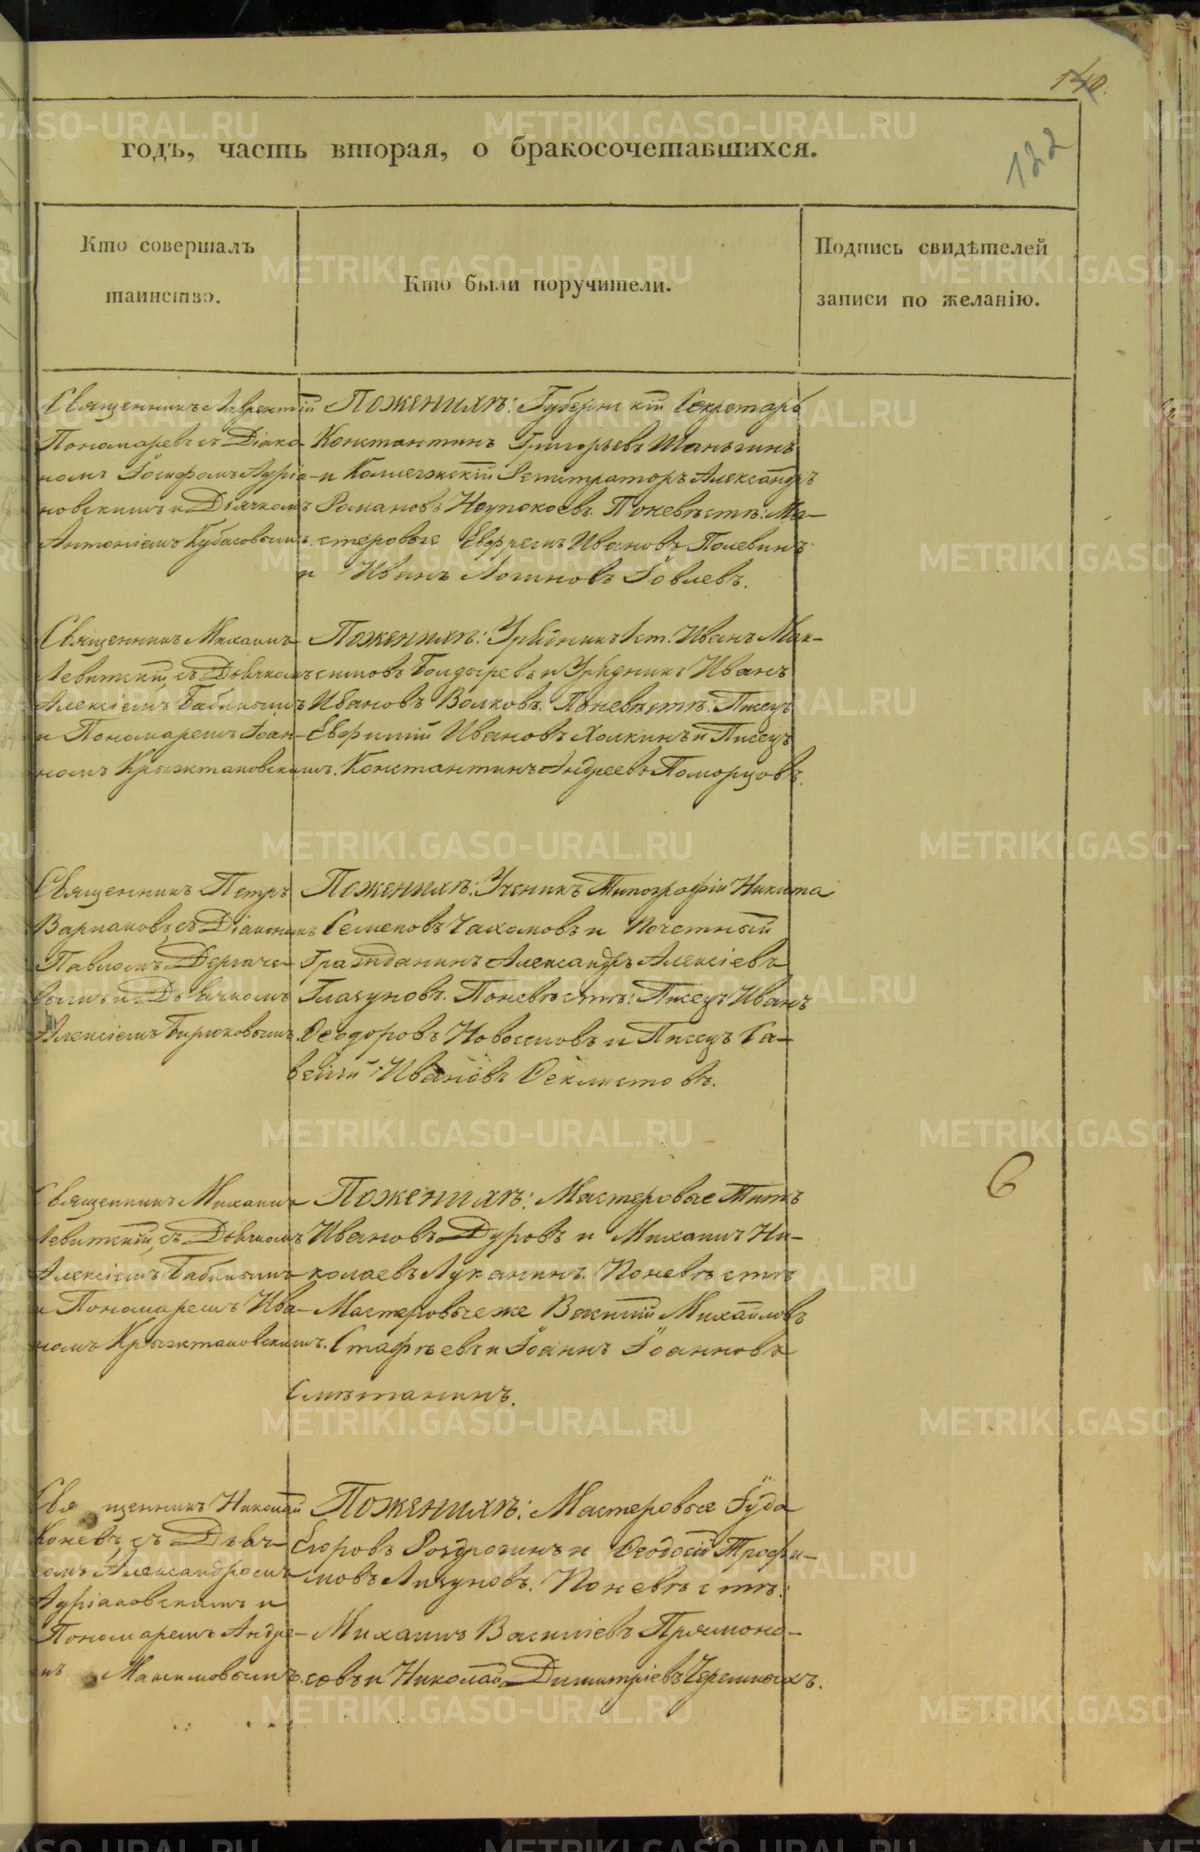 140.
122
годъ, часть вторая, о бракосочетавшихся.
Кто совершалъ
таинство.
Кто были поручители.
Подпись свидѣтелей
записи по желанію.
Священникъ Лаврентій
Пономаревъ съ Діако
номъ Іосифомъ Адріа-
новскимъ и Дьячкомъ
Антоніемъ Кубасовымъ.
По женихѣ: Губернскій Секретарь
Константинъ Григорьевъ Шаньгинъ
и Коллежскій Регистраторъ Александръ
Романовъ Неупокоевъ. По невѣстѣ: Ма-
стеровые Ефремъ Ивановъ Полевинъ
и Иванъ Логиновъ Іовлевъ.
Священникъ Михаилъ
Левитскій, съ Дьячкомъ
Алексіемъ Бабинымъ
и Пономаремъ Іоан-
номъ Крыжтановскимъ.
По женихѣ: Урядникъ 1 ст. Иванъ Мак-
симовъ Болдыревъ и Урядникъ Иванъ
Ивановъ Волковъ. По невѣстѣ: Писецъ
Евфимій Ивановъ Холкинъ и Писецъ
Константинъ Андреевъ Поморцовъ.
Священникъ Петръ
Варлаковъ, съ Діакономъ
Павломъ Дергаче-
вымъ и Дьячкомъ
Алексіемъ Бирюковымъ.
По женихѣ: Ученикъ Типографіи Никита
Семеновъ Чахомовъ и Почетный
Гражданинъ Александръ Алексіевъ
Глазуновъ. По невѣстѣ: Писецъ Иванъ
Ѳеодоровъ Новоселовъ и Писецъ Са-
велій Ивановъ Ѳеклистовъ.
6
Священникъ Михаилъ
Левитскій, съ Дьячкомъ
Алексіемъ Бабинымъ
и Пономаремъ Ива-
номъ Крыжтановскимъ.
По женихѣ: Мастеровые Титъ
Ивановъ Дуровъ и Михаилъ Ни-
колаевъ Луканинъ. По невѣстѣ
Мастеровые же Василій Михайловъ
Стафѣевъ и Іоаннъ Іоанновъ
Смѣтанинъ.
Священникъ Николай
Коневъ, съ Дьяч-
комъ Александромъ
Адріановскимъ и
Пономаремъ Андре-
емъ Максимовымъ.
По женихѣ: Мастеровые Іуда
Егоровъ Роздрогинъ и Ѳеодосій Трофи-
мовъ Лизуновъ. По невѣстѣ:
Михаилъ Василіевъ Прямоно-
совъ и Николай Димитріевъ Черемныхъ.